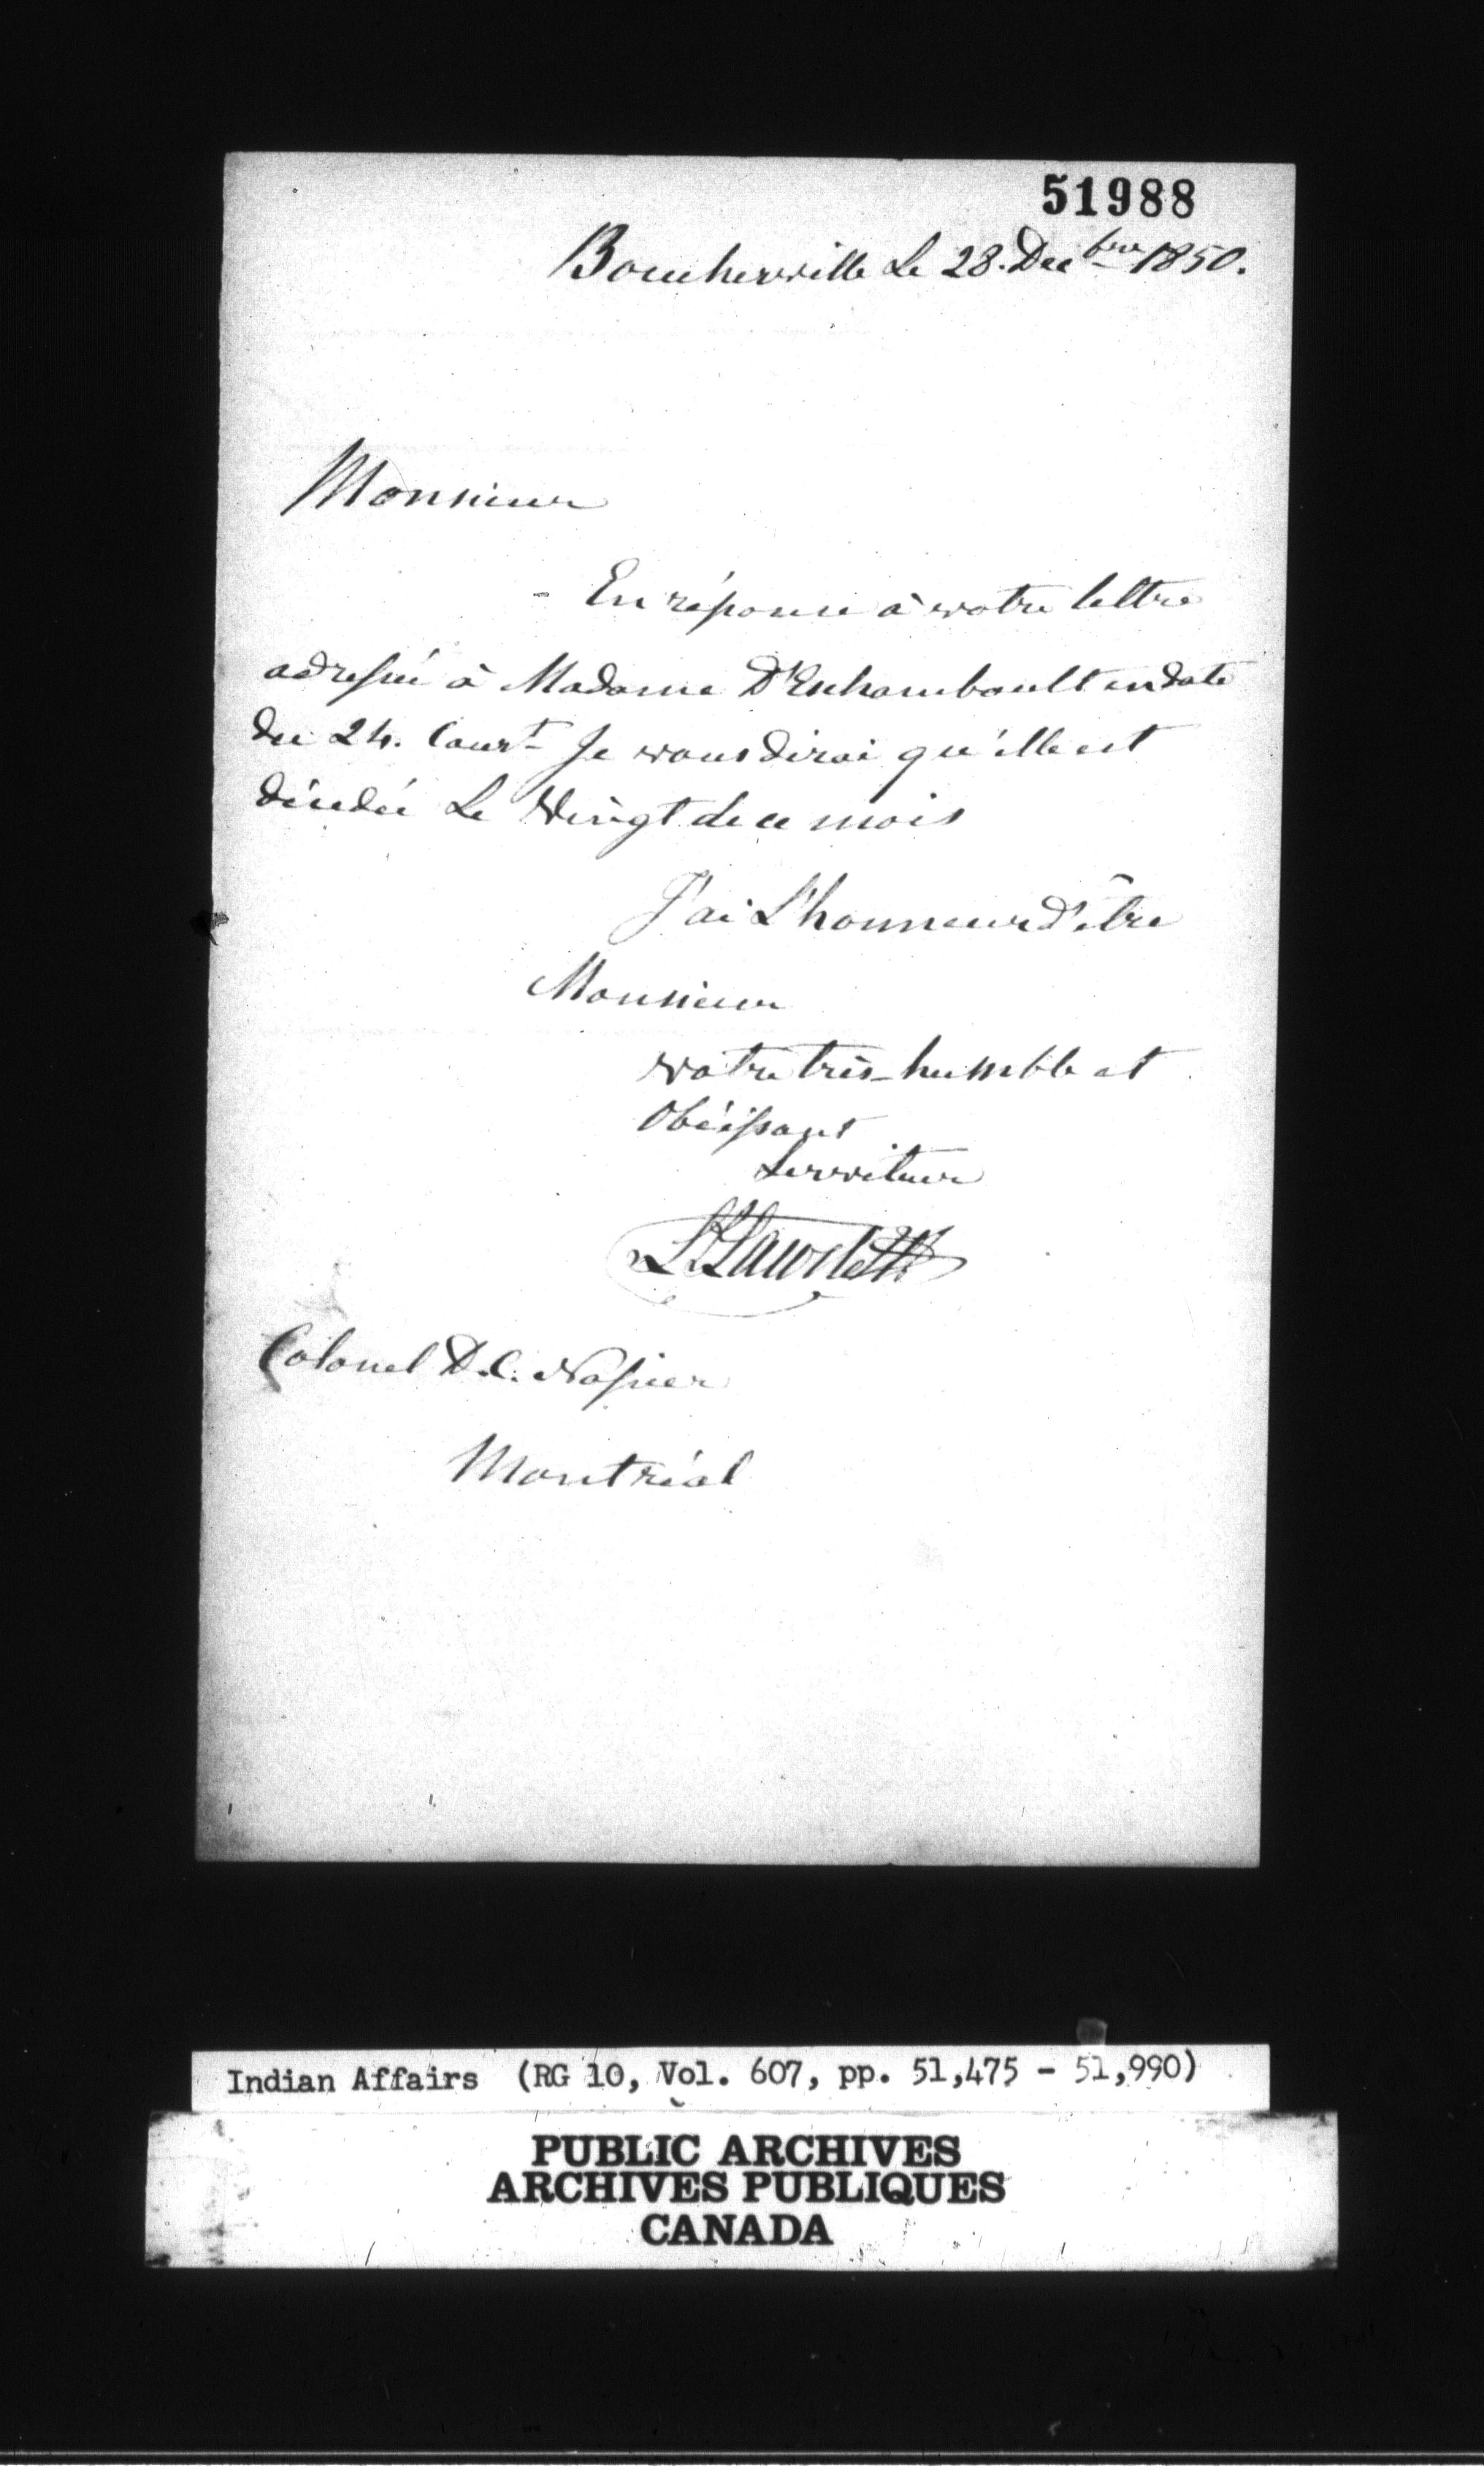 51988
Boucherville Le 28. Decbre 1850.
Monsieur
En réponse à votre lettre
adressée à Madame D'Eschambault en date
du 24. Court Je vous dirai qu'elle est
décédée Le Vingt de ce mois
J'ai L'honneur d'être
Monsieur
votre très-humble et
Obéissant
Serviteur
Colonel D.C. Napier
Montréal
Indian Affairs (RG 10, Vol. 607, pp. 51,475 - 51,990)
PUBLIC ARCHIVES
ARCHIVES PUBLIQUES
CANADA